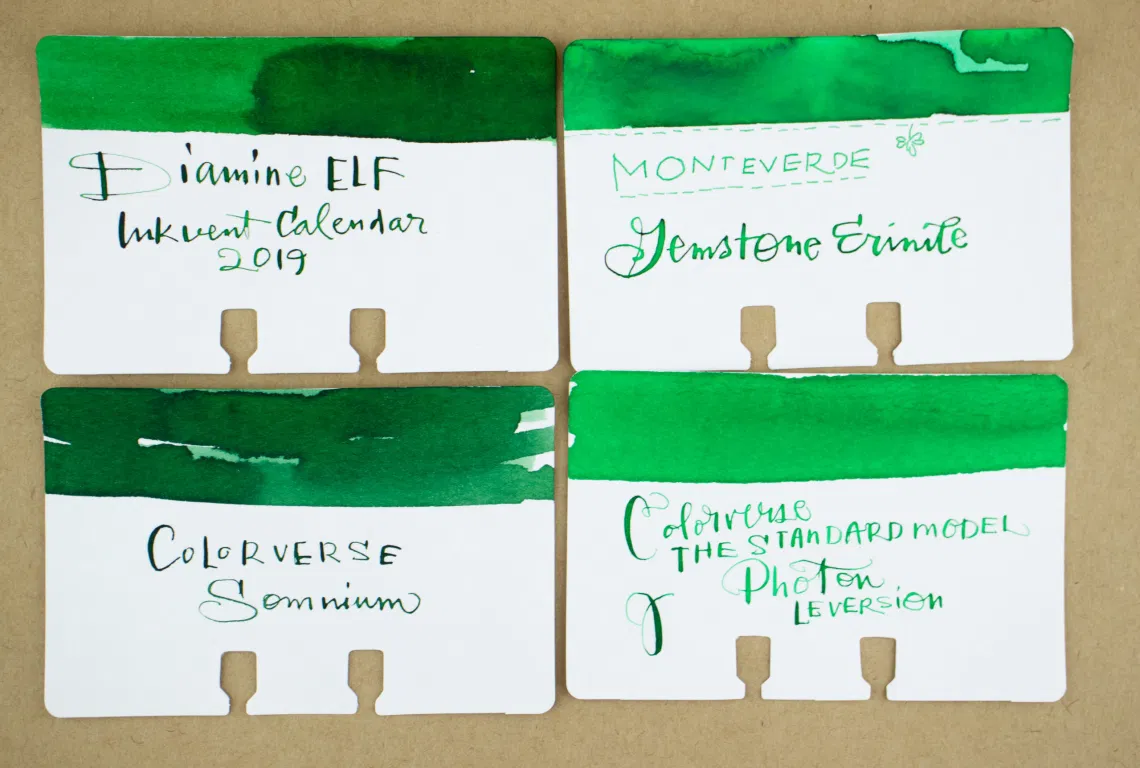 Diamine ELF
Inkvent Calendar
2019
MONTEVERDE
Gemstone Erinite
COLORVERSE
Somnium
Colorverse
THE STANDARD MODEL
Photon
LE VERSION